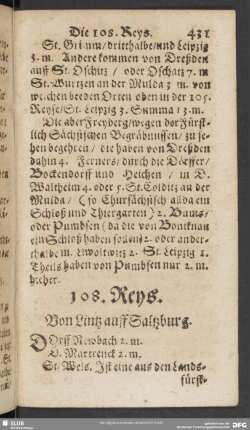 Die 108. Reys. 431
St. Grimm/ dritthalbe/ und Leipzig
3. m. Andere kommen von Dreßden
auff St. Oschitz / oder Oschatz 7. m
St. Wurtzen an der Mulda 3 m. von
welchen beeden Orten oben in der 105.
Reyse/ St. Leipzig 3. Summa 13. m.
Die aber Freyberg/ wegen der Fürst-
lich Sächsischen Begräbnussen/ zu se-
hen begehren / die haben von Dreßden
dahin 4. Ferners/ durch die Dörffer/
Bockendorff und Heichen / in D.
Waltheim 4. oder 5. St. Colditz an der
Mulda / (so Chursächsisch allda ein
Schloß und Thiergarten) 2. Baus/
oder Pumbsen (da die von
ein Schloß haben sollen) 2. oder ander-
thalbe m. 2. St. Leipzig 2.
Theils haben von Pumbsen nur 2. m.
hieher.
108. Reys.
Von Lintz auff Saltzburg.
Dorff Newbach 2. m.
D. Martrenck 2. m.
St. Wels. Ist eine aus den Lands-
fürst-